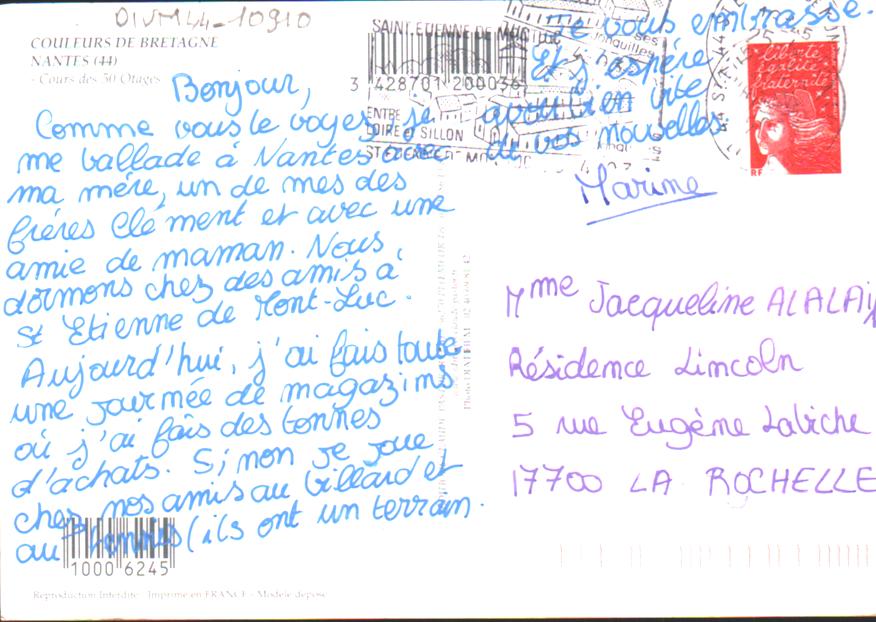 DIVM44-10910
COULEURS DE BRETAGNE
NANTES (44)
- Cours des 50 Otages
Bonjour,
Comme vous le voyez, je
me ballade à Nantes avec
ma mére, un de mes des
fréres Clément et avec une
amie de maman. Nous
dormons chez des amis à
St Etienne de Mont-Luc.
Aujourd'hui, j'ai fais toute
une journée de magazins
où j'ai fais des tonnes
d'achats. Sinon je joue
chez nos amis au billard et
au tennis (ils ont un terrain.
je vous embrasse.
Et j'espère
avoir bien vite
de vos nouvelles.
Marine
SAINT ETIENNE DE MONTLUC
ENTRE
LOIRE ET SILLON
3 428701 200036
Liberté
égalité
fraternité
RF
Mme Jacqueline ALALAIN
Résidence Lincoln
5 rue Eugène Labiche
17700 LA ROCHELLE
1000 6245
Reproduction Interdite - Imprimé en FRANCE - Modèle déposé